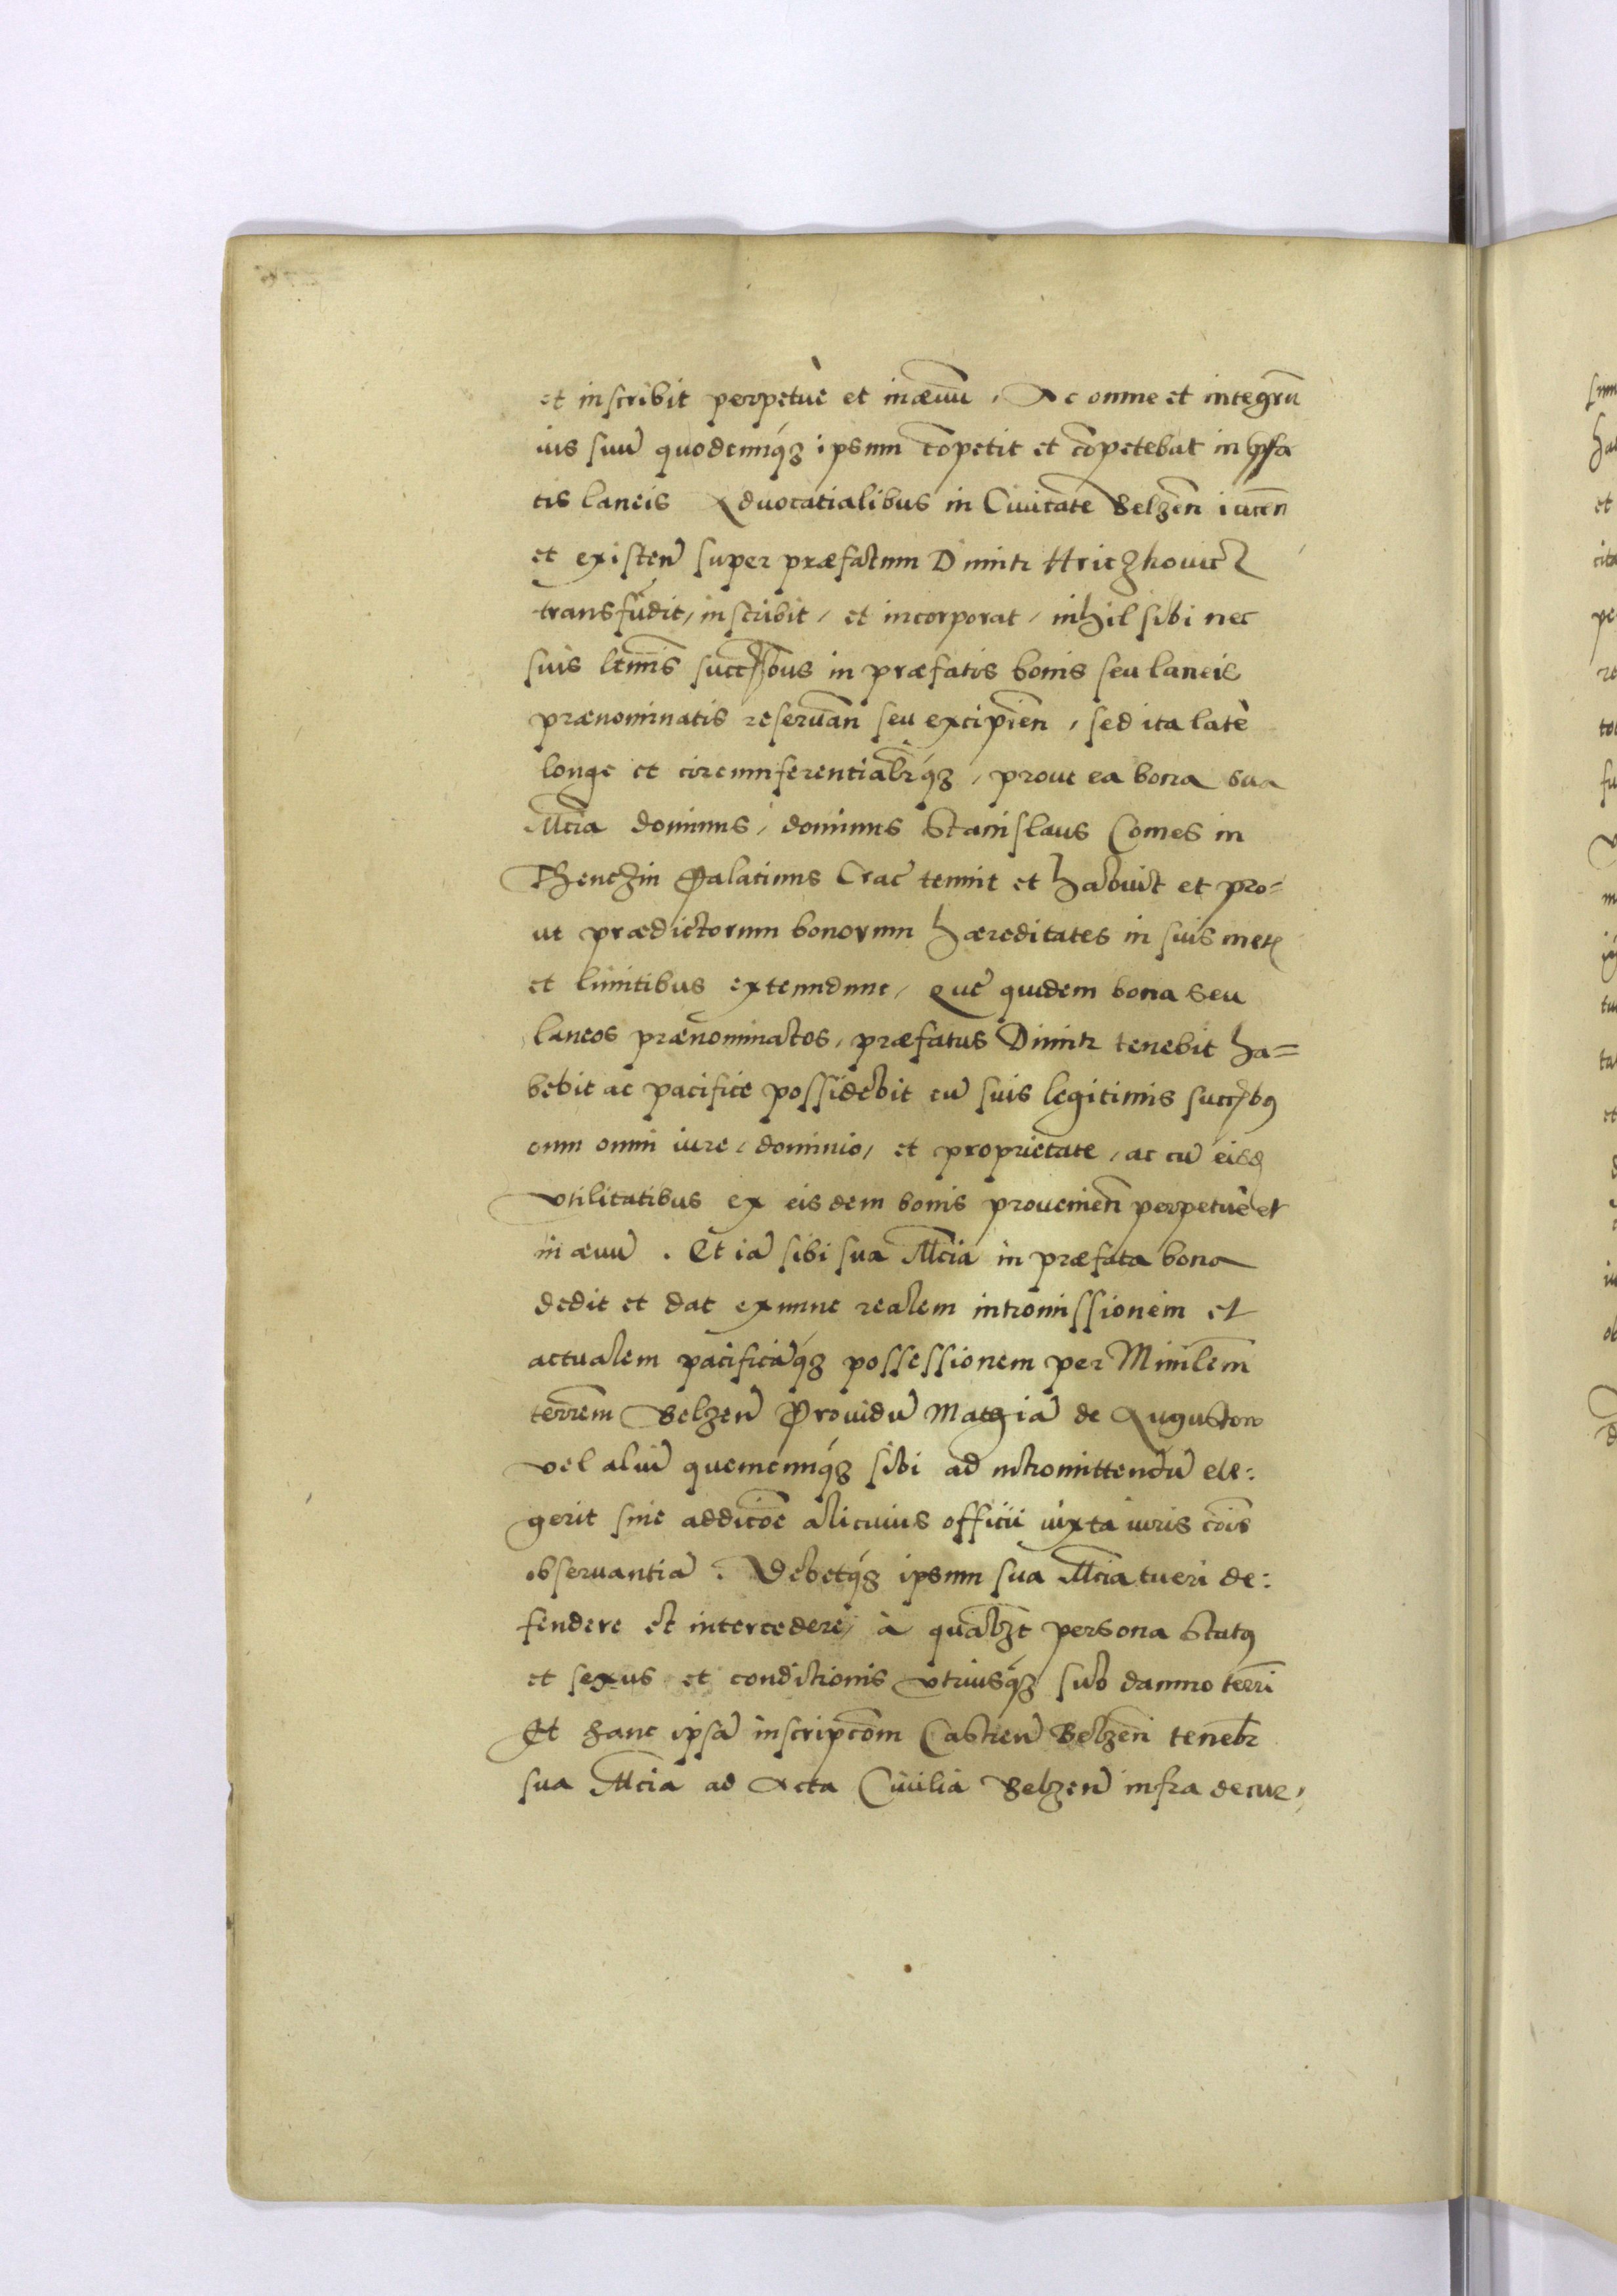 et inscribit perpetuè et inæuū, Ac omne et integrū
ius suū quodcunq́ꝫ ipsum cōpetit et cōpetebat in p̄fa
tis laneis Aduocatialibus in Ciuitate Belzen̄ iacen̄
et existen̄ super præfatum Dimitr Hriczkouicz
transfudit, inscribit, et incorporat, nihil sibi nec
suis ltimis successoribus in præfatis bonis seu laneis
prænominatis reseruan̄ seu excipien̄, sed ita latè
longe et circumferentialrq́ꝫ, prout ea bona sua
Mcia dominus, dominus Stanislaus Comes in
Thenczin Palatinus Crac̄ tenuit et habuit et pro=
ut prædictorum bonorum hæreditates in suis met
et limitibus extenndunt, Que quidem bona seu
laneos prænominatos, præfatus Dimitr tenebit ha=
bebit ac pacifice possidebit cū suis legitimis succbꝯ
cum omni iure, dominio, et proprietate, ac cū eisd
vtilitatibus ex eisdem bonis prouenien̄ perpetuè et
in æuū. Et iā sibi sua Mcia in præfata bona
dedit et dat exnunc realem intromissionem et
actualem pacificāq́ꝫ possessionem per Minilem̄
terrem̄ Belzen̄ Prouidū Mathiā de Augustow
vel aliū quemcunq́ꝫ sibi ad intromittendū ele:
gerit sine addicōe alicuius officii iuxta iuris cōis
obseruantiā. Debetq́ꝫ ipsum sua Mcia tueri de:
fendere et intercedere, à qualꝫt persona Statꝯ
et sexus et conditionis vtriusq́ꝫ sub damno terri
Et hanc ipsā inscripcōm Castren̄ Belzen̄ tenebr
sua Mcia ad Acta Ciuilia Belzen̄ infra decur,